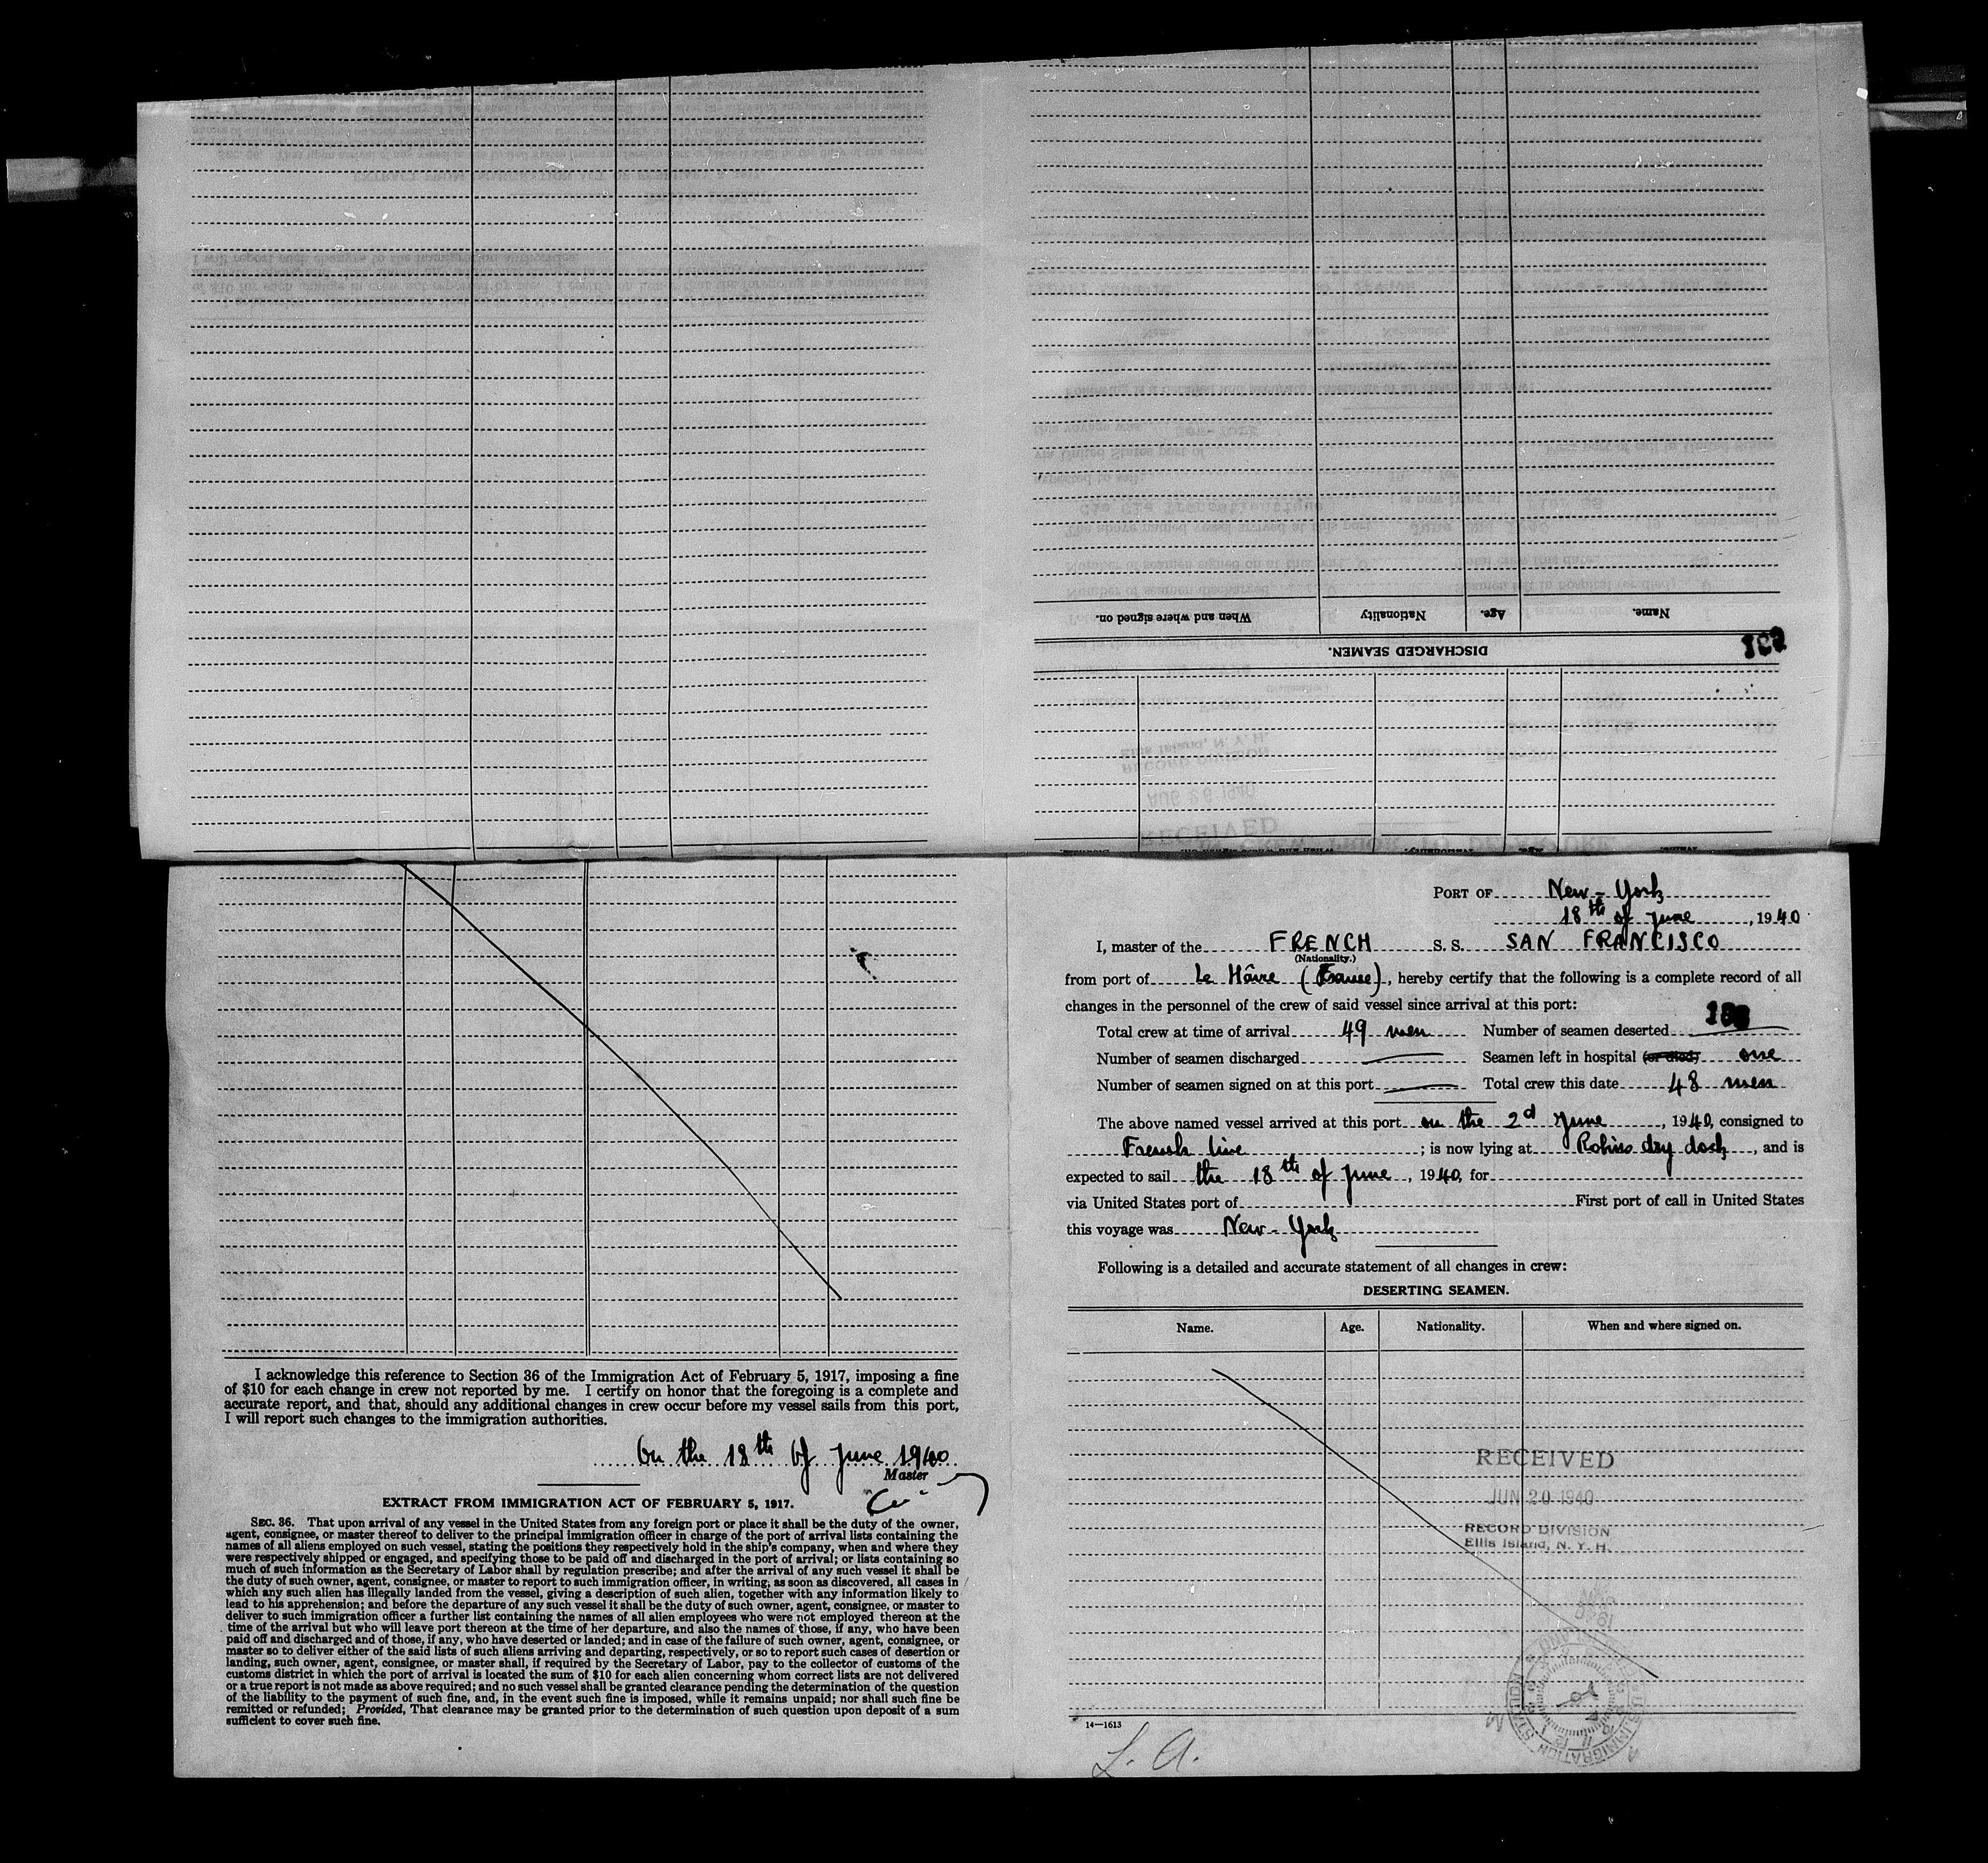 When and where signed on.
Nationality
Age.
Name.
DISCHARGED SEAMEN.
RECEIVED
AUG 26 1940
RECORD DIVISION
Ellis Island, N. Y. H.
PORT OF New-York
18th of June, 1940
I, master of the FRENCH S. S. SAN FRANCISCO
(Nationality.)
from port of Le Hâvre (France), hereby certify that the following is a complete record of all
changes in the personnel of the crew of said vessel since arrival at this port:
Total crew at time of arrival 49 men Number of seamen deserted
Number of seamen discharged Seamen left in hospital (or died) one
Number of seamen signed on at this port Total crew this date 48 men
The above named vessel arrived at this port on the 2d June, 1940, consigned to
French line; is now lying at Robins dry dock, and is
expected to sail the 18th of June, 1940, for
via United States port of First port of call in United States
this voyage was New-York
Following is a detailed and accurate statement of all changes in crew:
DESERTING SEAMEN.
Name. Age. Nationality. When and where signed on.
RECEIVED
JUN 20 1940
RECORD DIVISION
Ellis Island, N. Y. H.
14—1613
L. A.
I acknowledge this reference to Section 36 of the Immigration Act of February 5, 1917, imposing a fine
of $10 for each change in crew not reported by me. I certify on honor that the foregoing is a complete and
accurate report, and that, should any additional changes in crew occur before my vessel sails from this port,
I will report such changes to the immigration authorities.
On the 18th of June 1940
Master
EXTRACT FROM IMMIGRATION ACT OF FEBRUARY 5, 1917.
SEC. 36. That upon arrival of any vessel in the United States from any foreign port or place it shall be the duty of the owner,
agent, consignee, or master thereof to deliver to the principal immigration officer in charge of the port of arrival lists containing the
names of all aliens employed on such vessel, stating the positions they respectively hold in the ship's company, when and where they
were respectively shipped or engaged, and specifying those to be paid off and discharged in the port of arrival; or lists containing so
much of such information as the Secretary of Labor shall by regulation prescribe; and after the arrival of any such vessel it shall be
the duty of such owner, agent, consignee, or master to report to such immigration officer, in writing, as soon as discovered, all cases in
which any such alien has illegally landed from the vessel, giving a description of such alien, together with any information likely to
lead to his apprehension; and before the departure of any such vessel it shall be the duty of such owner, agent, consignee, or master to
deliver to such immigration officer a further list containing the names of all alien employees who were not employed thereon at the
time of the arrival but who will leave port thereon at the time of her departure, and also the names of those, if any, who have been
paid off and discharged and of those, if any, who have deserted or landed; and in case of the failure of such owner, agent, consignee, or
master so to deliver either of the said lists of such aliens arriving and departing, respectively, or so to report such cases of desertion or
landing, such owner, agent, consignee, or master shall, if required by the Secretary of Labor, pay to the collector of customs of the
customs district in which the port of arrival is located the sum of $10 for each alien concerning whom correct lists are not delivered
or a true report is not made as above required; and no such vessel shall be granted clearance pending the determination of the question
of the liability to the payment of such fine, and, in the event such fine is imposed, while it remains unpaid; nor shall such fine be
remitted or refunded; Provided, That clearance may be granted prior to the determination of such question upon deposit of a sum
sufficient to cover such fine.